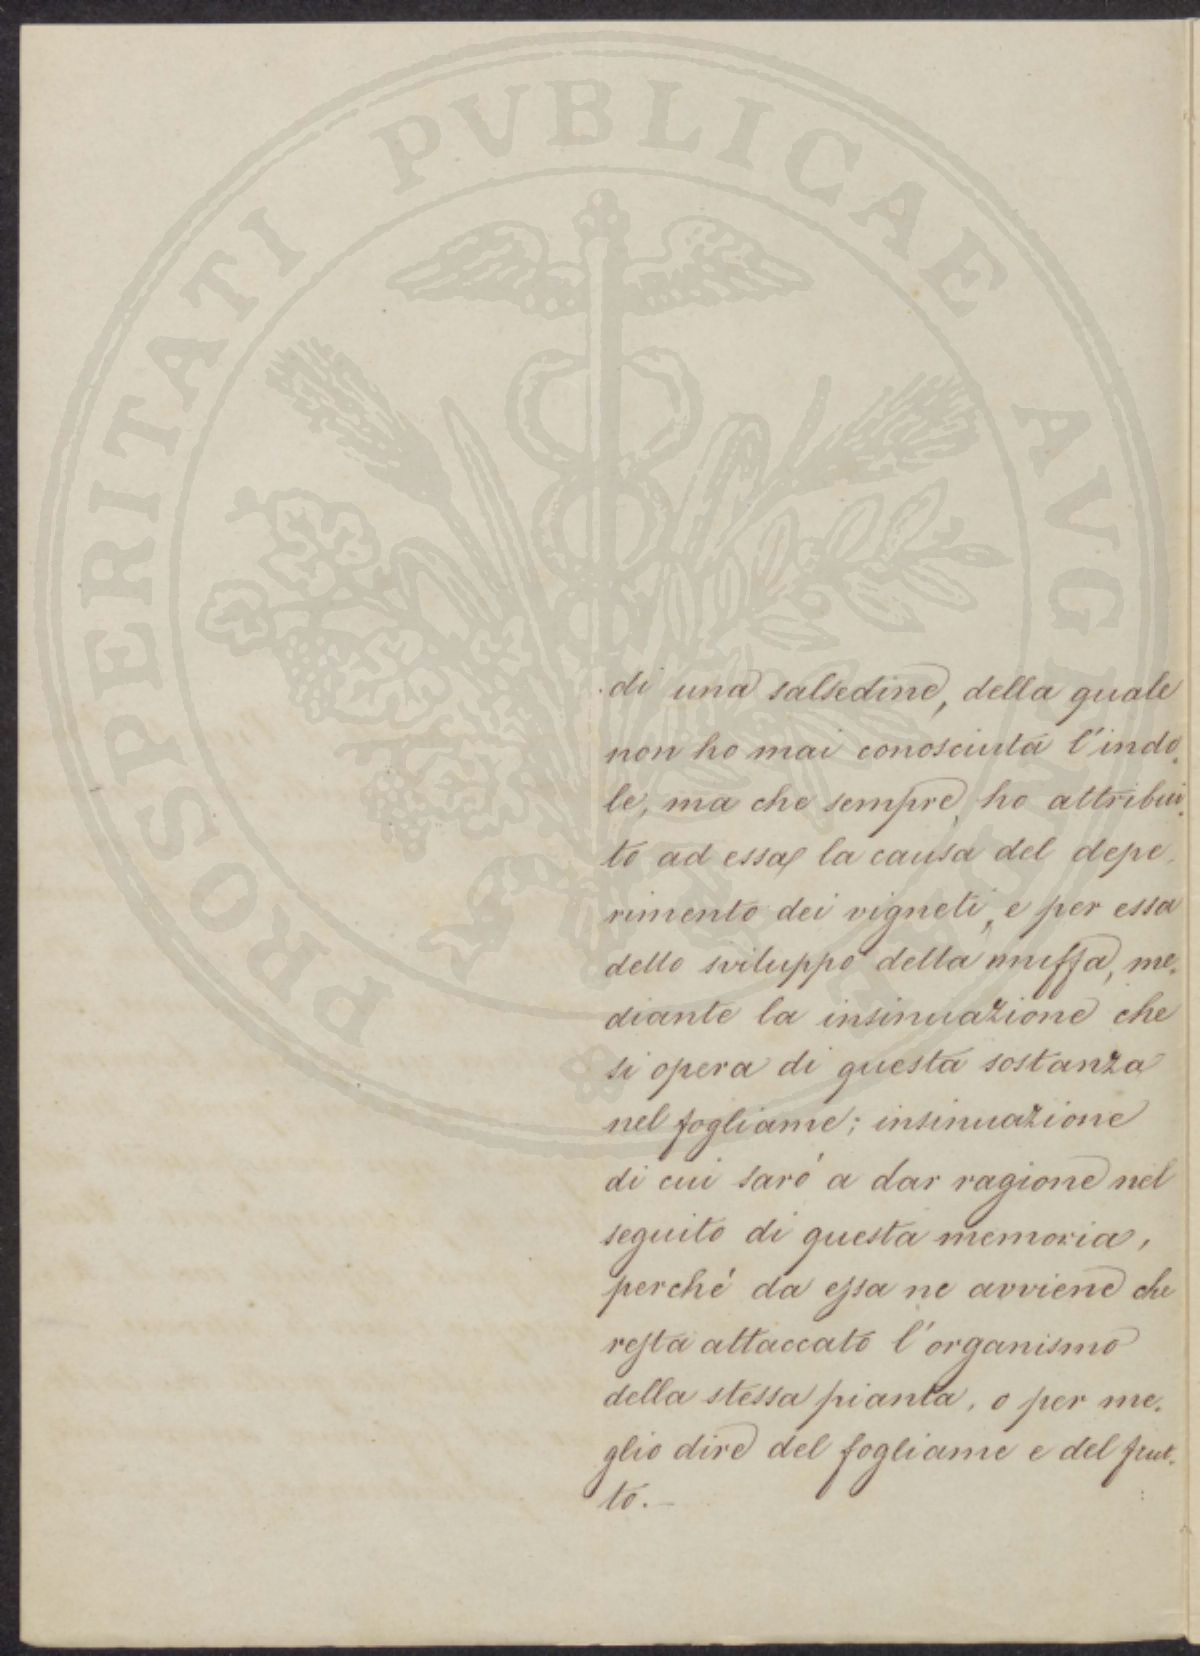 PROSPERITATI PUBLICAE AVGENDAE
di una salsedine, della quale
non ho mai conosciuta l'indo.
le, ma che sempre ho attribui.
to ad essa la causa del depe.
rimento dei vigneti, e per essa
dello sviluppo della muffa, me.
diante la insinuazione che
si opera di questa sostanza
nel fogliame; insinuazione
di cui saró a dar ragione nel
seguito di questa memoria,
perché da essa ne avviene che
resta attaccato l'organismo
della stessa pianta, o per me.
glio dire del fogliame e del frut.
to. —